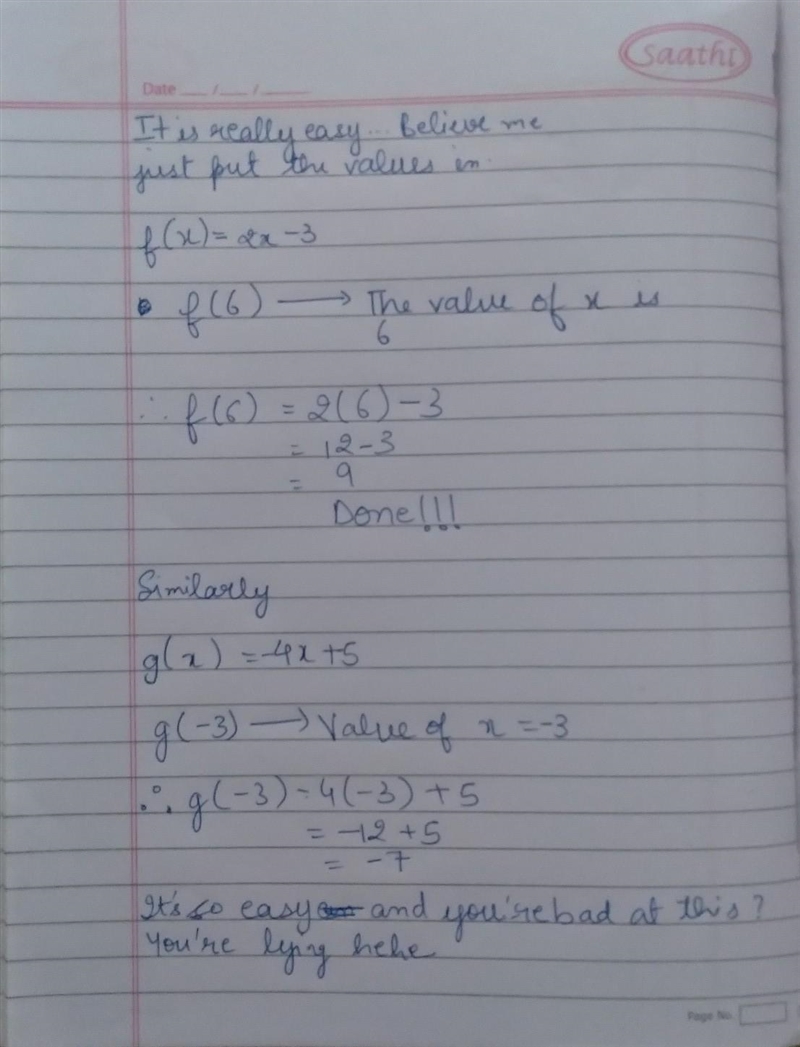 Saathi
Date __ / __ / ____
It is really easy... Believe me
just put the values in.
f(x) = 2x - 3
• f(6) ⟶ The value of x is
6
∴ f(6) = 2(6) - 3
= 12 - 3
= 9
Done!!!
Similarly
g(x) = -4x + 5
g(-3) ⟶ Value of x = -3
∴ g(-3) = 4(-3) + 5
= -12 + 5
= -7
It's so easy and you're bad at this?
You're lying hehe
Page No.